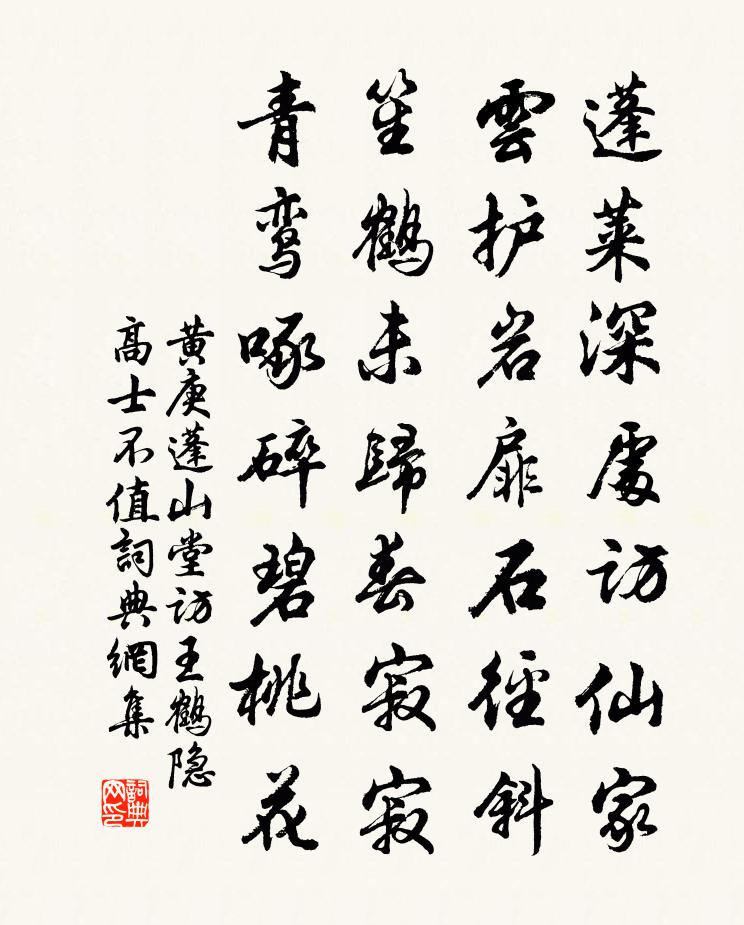 蓬萊深處访仙家
雲护岩扉石徑斜
笙鹤未歸春寂寂
青鸾啄碎碧桃花
黄庚蓬山堂访王鹤隐
高士不值詞典網集
詞典网印